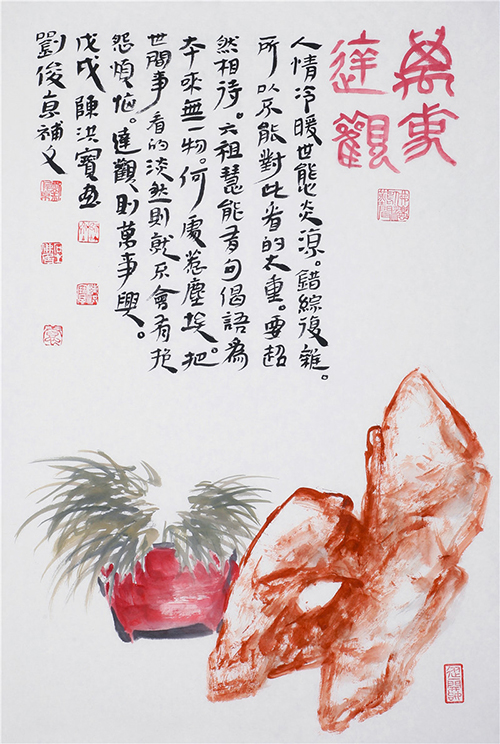 萬事
達觀
人情冷暖世態炎涼。錯綜復雜。
所以不能對此看的太重。要超
然相待。六祖慧能有句偈語為
本來無一物。何處惹塵埃。把
世間事看的淡然則就不會有抱
怨煩惱。達觀則萬事興。
戊戌陳洪寶畫
劉俊京補文